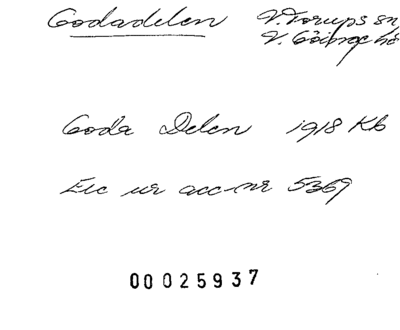 Godadelen V. Torups sn
V. Göinge hd
Goda Delen 1918 Kb
Exc ur acc-nr 5369
00025937